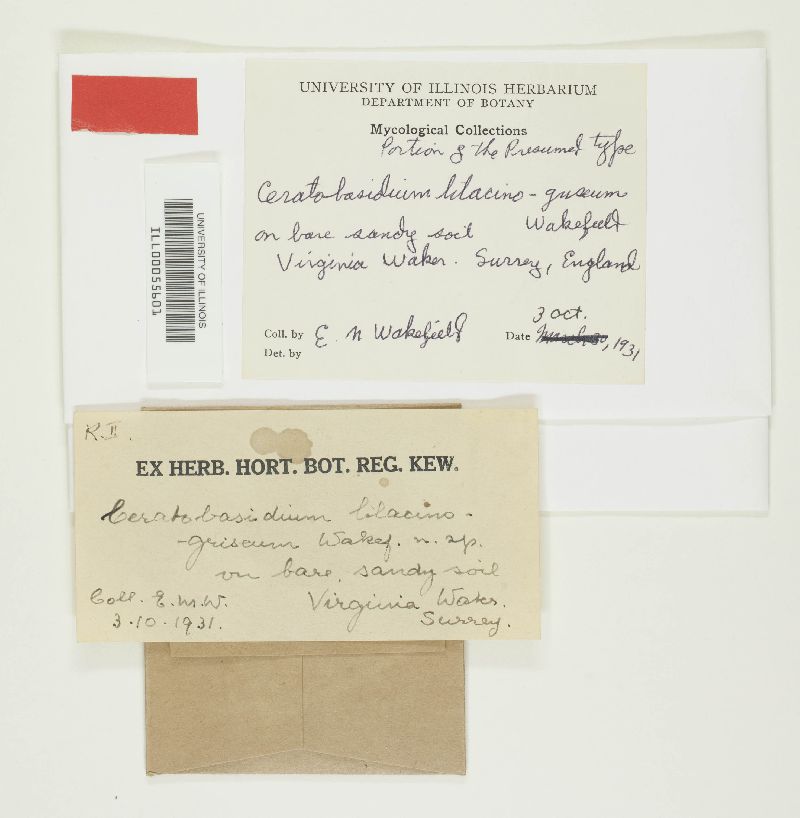 UNIVERSITY OF ILLINOIS HERBARIUM
DEPARTMENT OF BOTANY
Mycological Collections
Portion of the Presumed type
Ceratobasidium lilacino-griseum
on bare sandy soil Wakefield
Virginia Water. Surrey, England
3 Oct.
Coll. by E. M Wakefield Date , 1931
Det. by
UNIVERSITY OF ILLINOIS
ILL00055601
K.II.
EX HERB. HORT. BOT. REG. KEW.
Ceratobasidium lilacino-
-griseum Wakef. n. sp.
on bare, sandy soil
Coll. E.M.W. Virginia Water.
3.10.1931. Surrey.